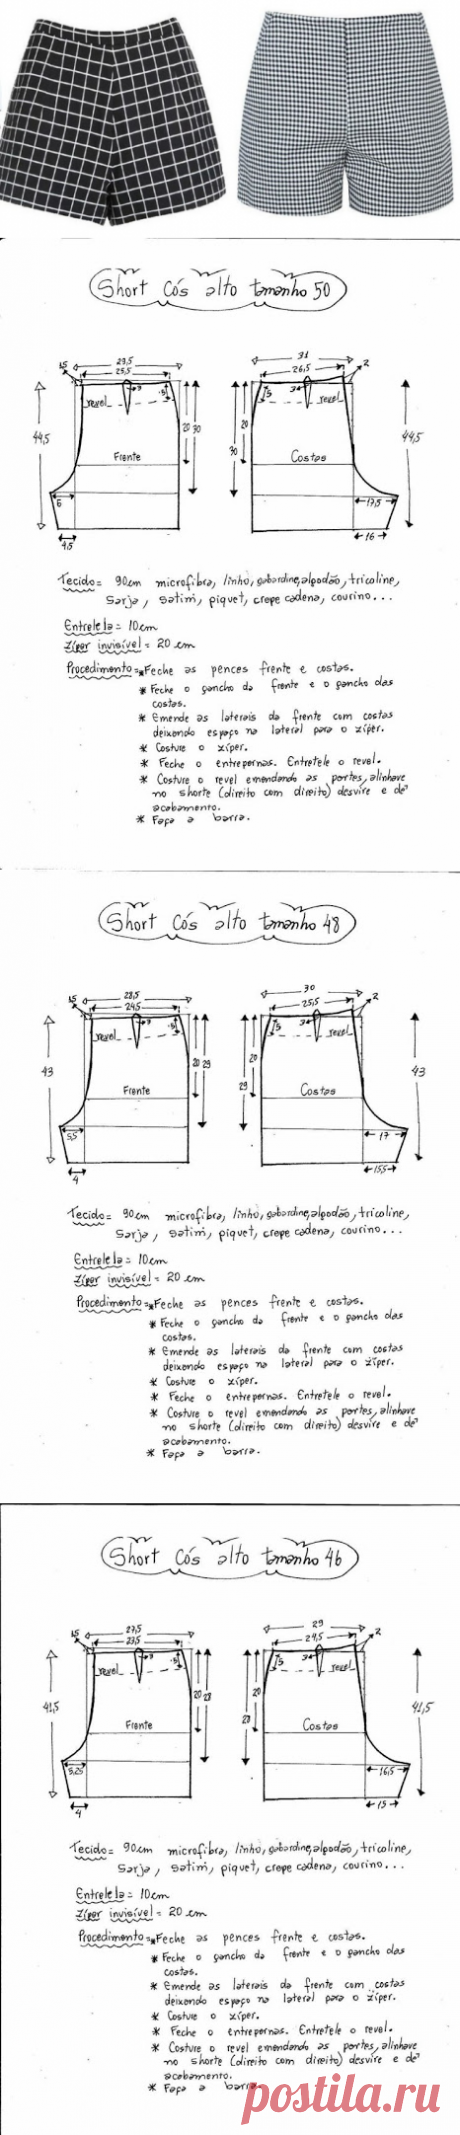 Short Cós alto tamanho 50
29,5
25,5
1,5
3
,5
revel
20
30
44,5
Frente
6
4,5
31
26,5
2
3
5
revel
20
30
44,5
Costas
17,5
16
Tecido = 90cm microfibra, linho, gabardine, algodão, tricoline,
Sarja, satim, piquet, crepe cadena, courino...
Entretela = 10cm
Zíper invisível = 20 cm
Procedimento = * Feche as pences frente e costas.
* Feche o gancho da frente e o gancho das
costas.
* Emende as laterais da frente com costas
deixando espaço na lateral para o zíper.
* Costure o zíper.
* Feche o entrepernas. Entretele o revel.
* Costure o revel emendando as partes, alinhave
no shorte (direito com direito) desvire e dê
acabamento.
* Faça a barra.
Short Cós alto tamanho 48
28,5
24,5
1,5
3
,5
revel
20
29
43
Frente
5,5
4
30
25,5
2
3
5
revel
20
29
43
Costas
17
15,5
Tecido = 90cm microfibra, linho, gabardine, algodão, tricoline,
Sarja, satim, piquet, crepe cadena, courino...
Entretela = 10cm
Zíper invisível = 20 cm
Procedimento = * Feche as pences frente e costas.
* Feche o gancho da frente e o gancho das
costas.
* Emende as laterais da frente com costas
deixando espaço na lateral para o zíper.
* Costure o zíper.
* Feche o entrepernas. Entretele o revel.
* Costure o revel emendando as partes, alinhave
no shorte (direito com direito) desvire e dê
acabamento.
* Faça a barra.
Short Cós alto tamanho 46
27,5
23,5
1,5
3
,5
revel
20
28
41,5
Frente
5,25
4
29
24,5
2
3
5
revel
20
28
41,5
Costas
16,5
15
Tecido = 90cm microfibra, linho, gabardine, algodão, tricoline,
Sarja, satim, piquet, crepe cadena, courino...
Entretela = 10cm
Zíper invisível = 20 cm
Procedimento = * Feche as pences frente e costas.
* Feche o gancho da frente e o gancho das
costas.
* Emende as laterais da frente com costas
deixando espaço na lateral para o zíper.
* Costure o zíper.
* Feche o entrepernas. Entretele o revel.
* Costure o revel emendando as partes, alinhave
no shorte (direito com direito) desvire e dê
acabamento.
* Faça a barra.
postila.ru